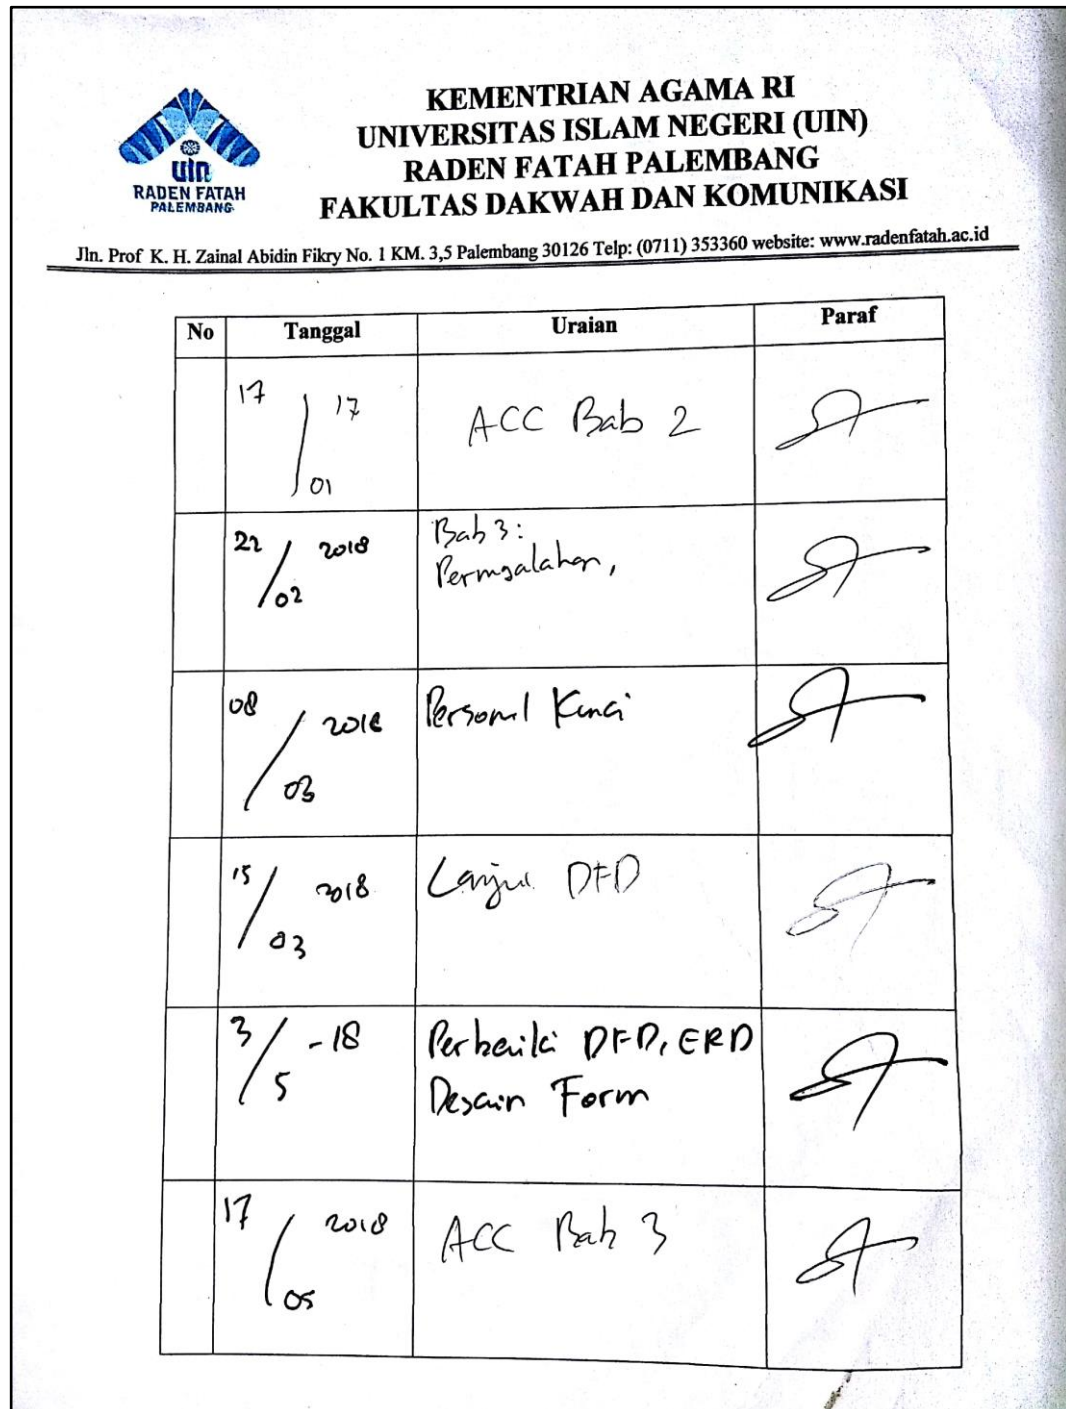 uin
RADEN FATAH
PALEMBANG
KEMENTRIAN AGAMA RI
UNIVERSITAS ISLAM NEGERI (UIN)
RADEN FATAH PALEMBANG
FAKULTAS DAKWAH DAN KOMUNIKASI
Jln. Prof K. H. Zainal Abidin Fikry No. 1 KM. 3,5 Palembang 30126 Telp: (0711) 353360 website: www.radenfatah.ac.id
No Tanggal Uraian Paraf
17 / 17
01
ACC Bab 2
22 / 2018
02
Bab 3:
08 / 2018
03
Personil Kunci
15 / 2018
03
DFD
3 / -18
5
Perbaiki DFD, ERD
Desain Form
17 / 2018
05
ACC Bab 3